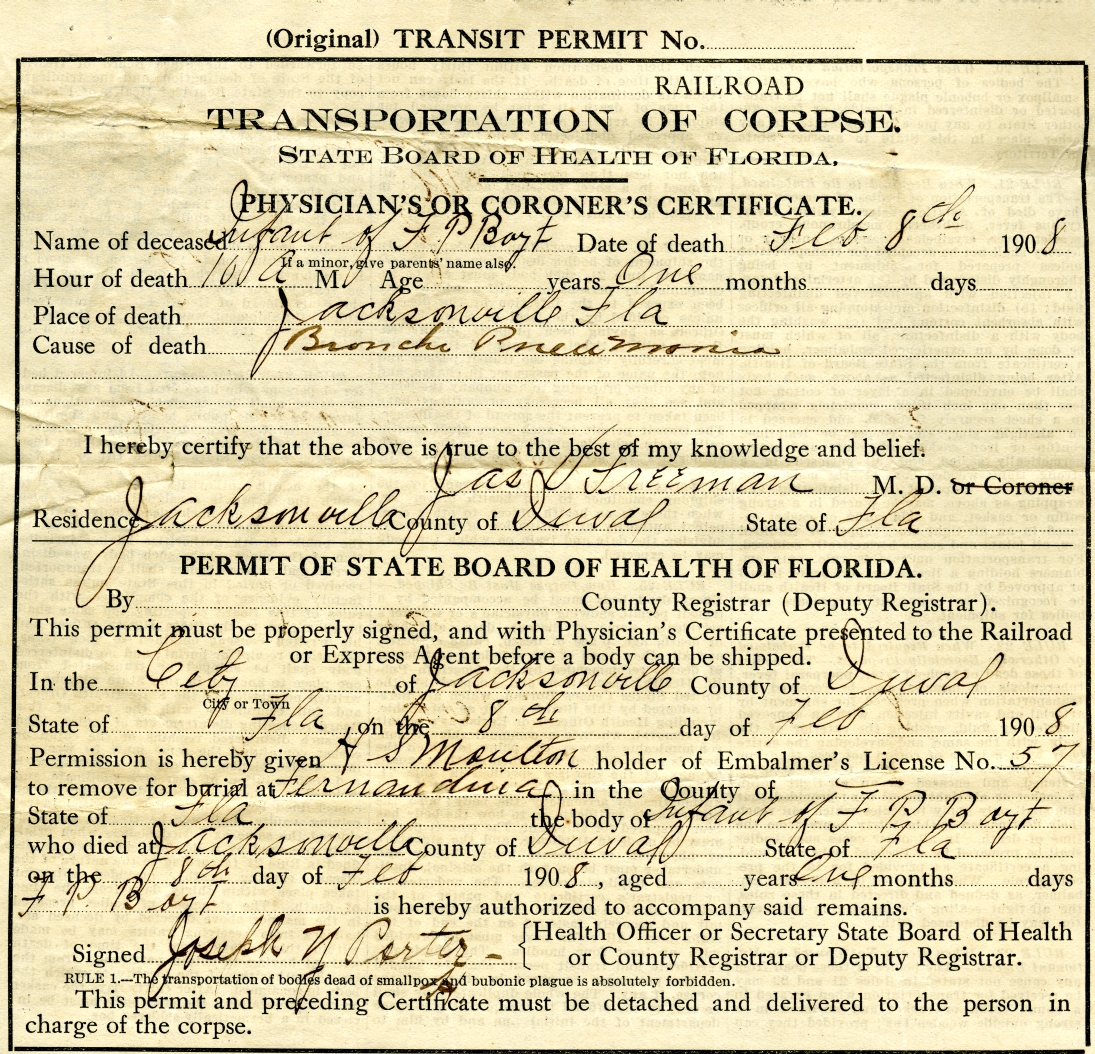 (Original) TRANSIT PERMIT No.
RAILROAD
TRANSPORTATION OF CORPSE.
STATE BOARD OF HEALTH OF FLORIDA.
PHYSICIAN'S OR CORONER'S CERTIFICATE.
Name of deceased Infant of F P Boyt Date of death Feb 8th 1908
If a minor, give parents' name also.
Hour of death 10 A M Age years One months days
Place of death Jacksonville Fla
Cause of death Broncho Pneumonia
I hereby certify that the above is true to the best of my knowledge and belief.
Jas D Freeman M. D. or Coroner
Residence Jacksonville County of Duval State of Fla
PERMIT OF STATE BOARD OF HEALTH OF FLORIDA.
By County Registrar (Deputy Registrar).
This permit must be properly signed, and with Physician's Certificate presented to the Railroad
or Express Agent before a body can be shipped.
In the City of Jacksonville County of Duval
City or Town
State of Fla on the 8th day of Feb 1908
Permission is hereby given H S Moulton holder of Embalmer's License No. 57
to remove for burial at Fernandina in the County of
State of Fla the body of Infant of F P Boyt
who died at Jacksonville County of Duval State of Fla
on the 8th day of Feb 1908, aged years One months days
F P Boyt is hereby authorized to accompany said remains.
Signed Joseph Y Porter { Health Officer or Secretary State Board of Health
or County Registrar or Deputy Registrar.
RULE 1.—The transportation of bodies dead of smallpox and bubonic plague is absolutely forbidden.
This permit and preceding Certificate must be detached and delivered to the person in
charge of the corpse.